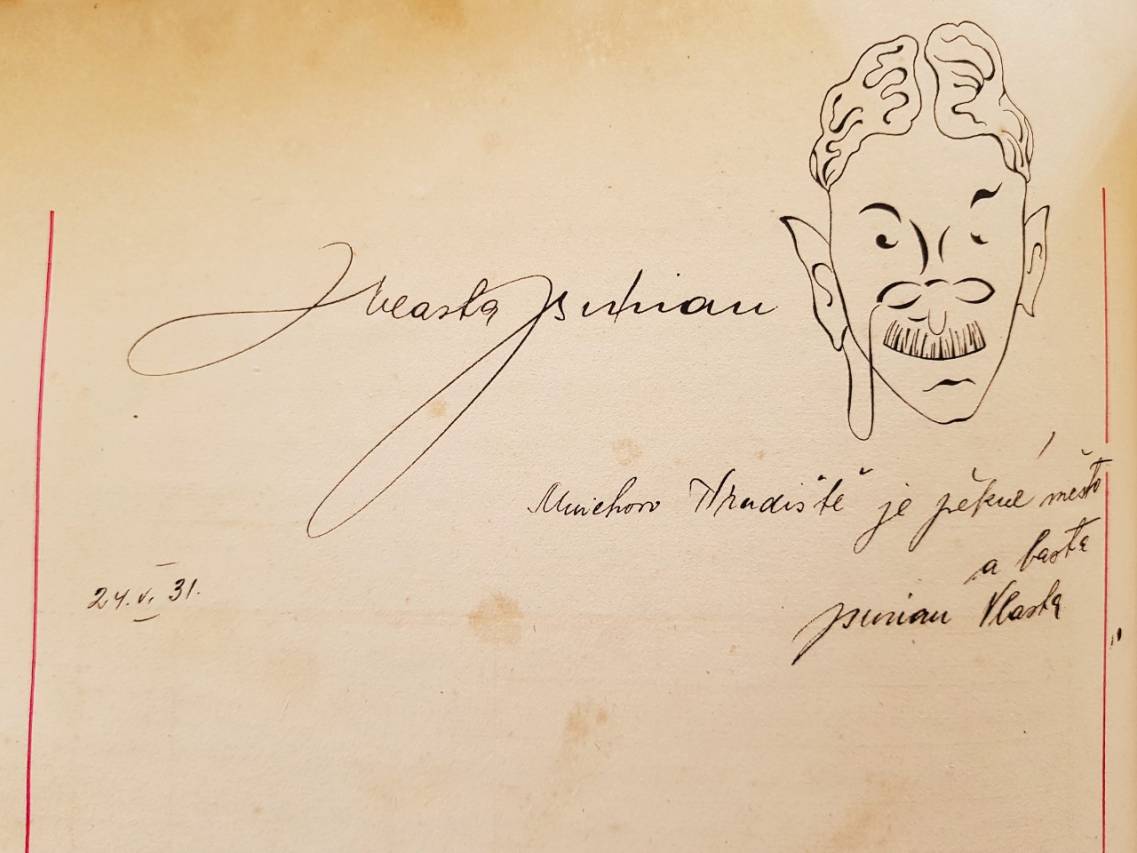 Vlasta Burian
Mnichovo Hradiště je pěkné město
a basta
Burian Vlasta
24. VI. 31.